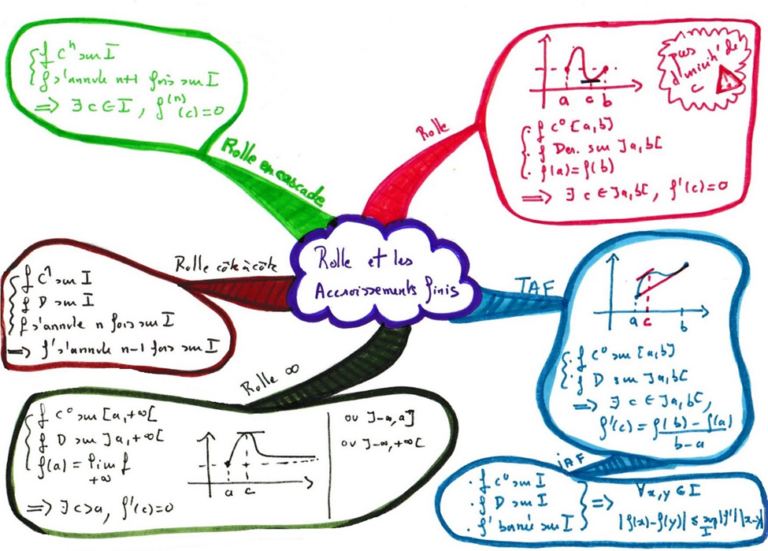 Rolle et les
Accroissements finis
Rolle en cascade
f Cⁿ sur I
f s'annule n+1 fois sur I
⟹ ∃ c ∈ I, f⁽ⁿ⁾(c)=0
Rolle
a c b
pas
d'unicité de
c
f C⁰ [a,b]
f Der. sur ]a,b[
f(a)=f(b)
⟹ ∃ c ∈ ]a,b[, f'(c)=0
Rolle côte à côte
f C¹ sur I
f D sur I
f s'annule n fois sur I
⟹ f' s'annule n-1 fois sur I
TAF
a c b
f C⁰ sur [a,b]
f D sur ]a,b[
⟹ ∃ c ∈ ]a,b[,
f'(c) = (f(b)-f(a))/(b-a)
Rolle ∞
f C⁰ sur [a,+∞[
f D sur ]a,+∞[
f(a) = lim f
+∞
⟹ ∃ c>a, f'(c)=0
a c
ou ]-∞,a]
ou ]-∞,+∞[
iAF
f C⁰ sur I
f D sur I
f' bornée sur I
⟹ ∀x,y ∈ I
|f(x)-f(y)| ≤ sup|f'| |x-y|
I